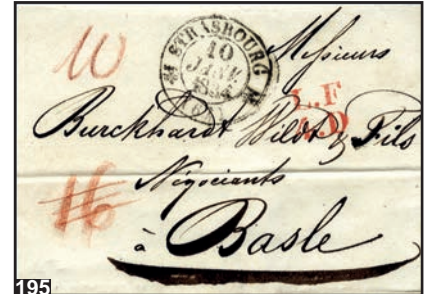 10
STRASBOURG
10
JANV
Messieurs
L.F
Burckhardt Wildt & Fils
16
Négociants
à Basle
195